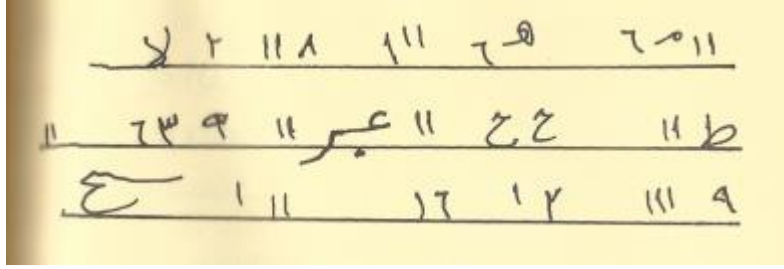 ١١ م ٦ هـ ٦ ١١١ ٨ ١١ ٢ لا
ط ١١ ح ح ١١ عبر ١١ ٩ ٦٣ ١١
٩ ١١١ ٢ ١ ١٦ ١١ ١ ع